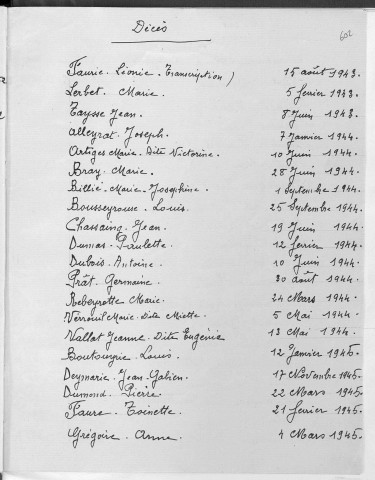 Décès
602
Faurie. Léonie. Transcription) 15 août 1943.
Lerbet. Marie. 5 février 1943.
Taysse Jean. 8 Juin 1943.
Alleyrat. Joseph. 7 Janvier 1944.
Artiges Marie. Dite Victorine. 10 Juin 1944.
Bray. Marie. 28 Juin 1944.
Billié. Marie. Joséphine. 1 Septembre 1944.
Bousseyrouse. Louis. 25 Septembre 1944.
Chassaing. Jean. 19 Juin 1944.
Dumas. Paulette. 12 février 1944.
Dubois. Antoine. 10 Juin 1944.
Prât. Germaine. 30 août 1944.
Rebeyrotte Marie. 24 Mars 1944.
Verrouil Marie. Dite Miette. 5 Mai 1944.
Vallat Jeanne. Dite Eugénie 13 Mai 1944.
Boutouyrie. Louis. 12 Janvier 1945.
Deymarie. Jean. Gabien. 17 Novembre 1945.
Dumond. Pierre. 22 Mars 1945.
Faure. Toinette. 21 février 1945.
Grégoire. Anna. 4 Mars 1945.